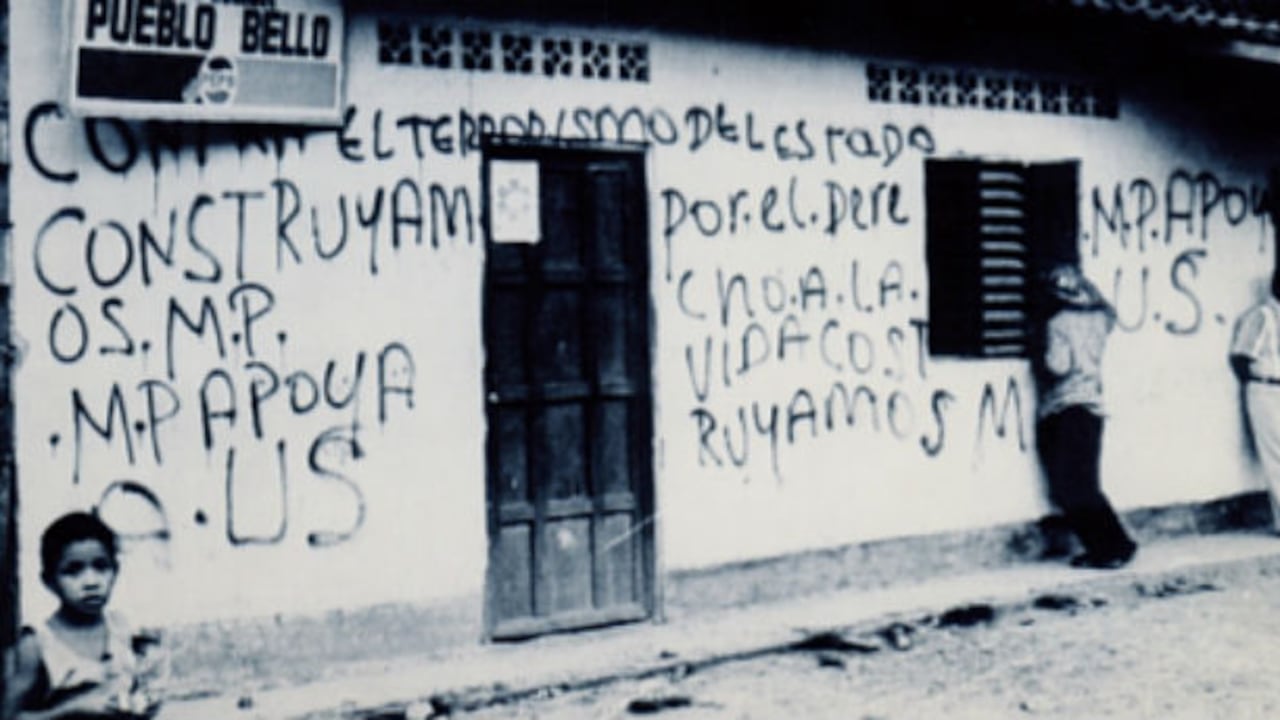 PUEBLO BELLO
CONTRA EL TERRORISMO DEL ESTADO
CONSTRUYAM
OS. M.P.
.M.P APOYA
A.US
por.el.Dere
cho.A.LA.
VIDA COST
RUYAMOS M
.M.P.APOY
U.S.